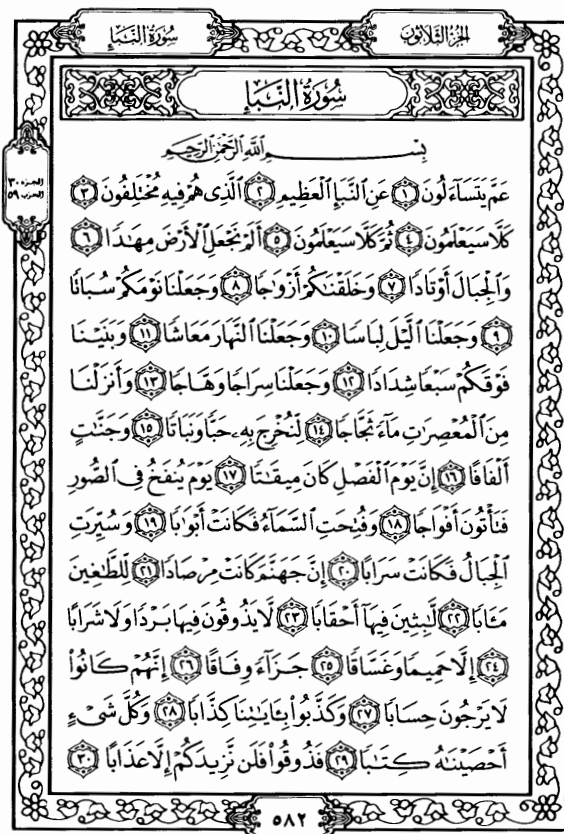 الجزء الثلاثون
سورة النبإ
الجزء ٣٠
الحزب ٥٩
سُورَةُ النَّبَإِ
بِسْمِ ٱللَّهِ ٱلرَّحْمَٰنِ ٱلرَّحِيمِ
عَمَّ يَتَسَآءَلُونَ ١ عَنِ ٱلنَّبَإِ ٱلْعَظِيمِ ٢ ٱلَّذِى هُمْ فِيهِ مُخْتَلِفُونَ ٣
كَلَّا سَيَعْلَمُونَ ٤ ثُمَّ كَلَّا سَيَعْلَمُونَ ٥ أَلَمْ نَجْعَلِ ٱلْأَرْضَ مِهَٰدًا ٦
وَٱلْجِبَالَ أَوْتَادًا ٧ وَخَلَقْنَٰكُمْ أَزْوَٰجًا ٨ وَجَعَلْنَا نَوْمَكُمْ سُبَاتًا
٩ وَجَعَلْنَا ٱلَّيْلَ لِبَاسًا ١٠ وَجَعَلْنَا ٱلنَّهَارَ مَعَاشًا ١١ وَبَنَيْنَا
فَوْقَكُمْ سَبْعًا شِدَادًا ١٢ وَجَعَلْنَا سِرَاجًا وَهَّاجًا ١٣ وَأَنزَلْنَا
مِنَ ٱلْمُعْصِرَٰتِ مَآءً ثَجَّاجًا ١٤ لِّنُخْرِجَ بِهِۦ حَبًّا وَنَبَاتًا ١٥ وَجَنَّٰتٍ
أَلْفَافًا ١٦ إِنَّ يَوْمَ ٱلْفَصْلِ كَانَ مِيقَٰتًا ١٧ يَوْمَ يُنفَخُ فِى ٱلصُّورِ
فَتَأْتُونَ أَفْوَاجًا ١٨ وَفُتِحَتِ ٱلسَّمَآءُ فَكَانَتْ أَبْوَٰبًا ١٩ وَسُيِّرَتِ
ٱلْجِبَالُ فَكَانَتْ سَرَابًا ٢٠ إِنَّ جَهَنَّمَ كَانَتْ مِرْصَادًا ٢١ لِّلطَّٰغِينَ
مَـَٔابًا ٢٢ لَّٰبِثِينَ فِيهَآ أَحْقَابًا ٢٣ لَّا يَذُوقُونَ فِيهَا بَرْدًا وَلَا شَرَابًا
٢٤ إِلَّا حَمِيمًا وَغَسَّاقًا ٢٥ جَزَآءً وِفَاقًا ٢٦ إِنَّهُمْ كَانُوا۟
لَا يَرْجُونَ حِسَابًا ٢٧ وَكَذَّبُوا۟ بِـَٔايَٰتِنَا كِذَّابًا ٢٨ وَكُلَّ شَىْءٍ
أَحْصَيْنَٰهُ كِتَٰبًا ٢٩ فَذُوقُوا۟ فَلَن نَّزِيدَكُمْ إِلَّا عَذَابًا ٣٠
٥٨٢